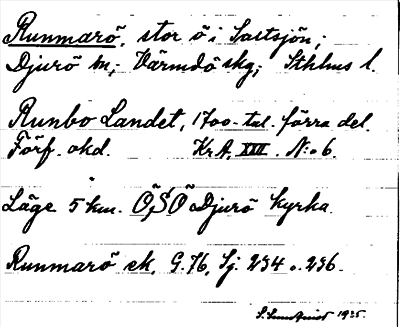 Runmarö, stor ö i Saltsjön;
Djurö sn; Värmdö skg; Sthlms l.
Runbo Landet, 1700-tal. förra del.
Förf. okd. Kr.A. XXII. N:o 6.
Läge 5 km. ÖSÖ Djurö kyrka.
Runmarö sk. G.76, Sj. 234 o. 236.
1935.